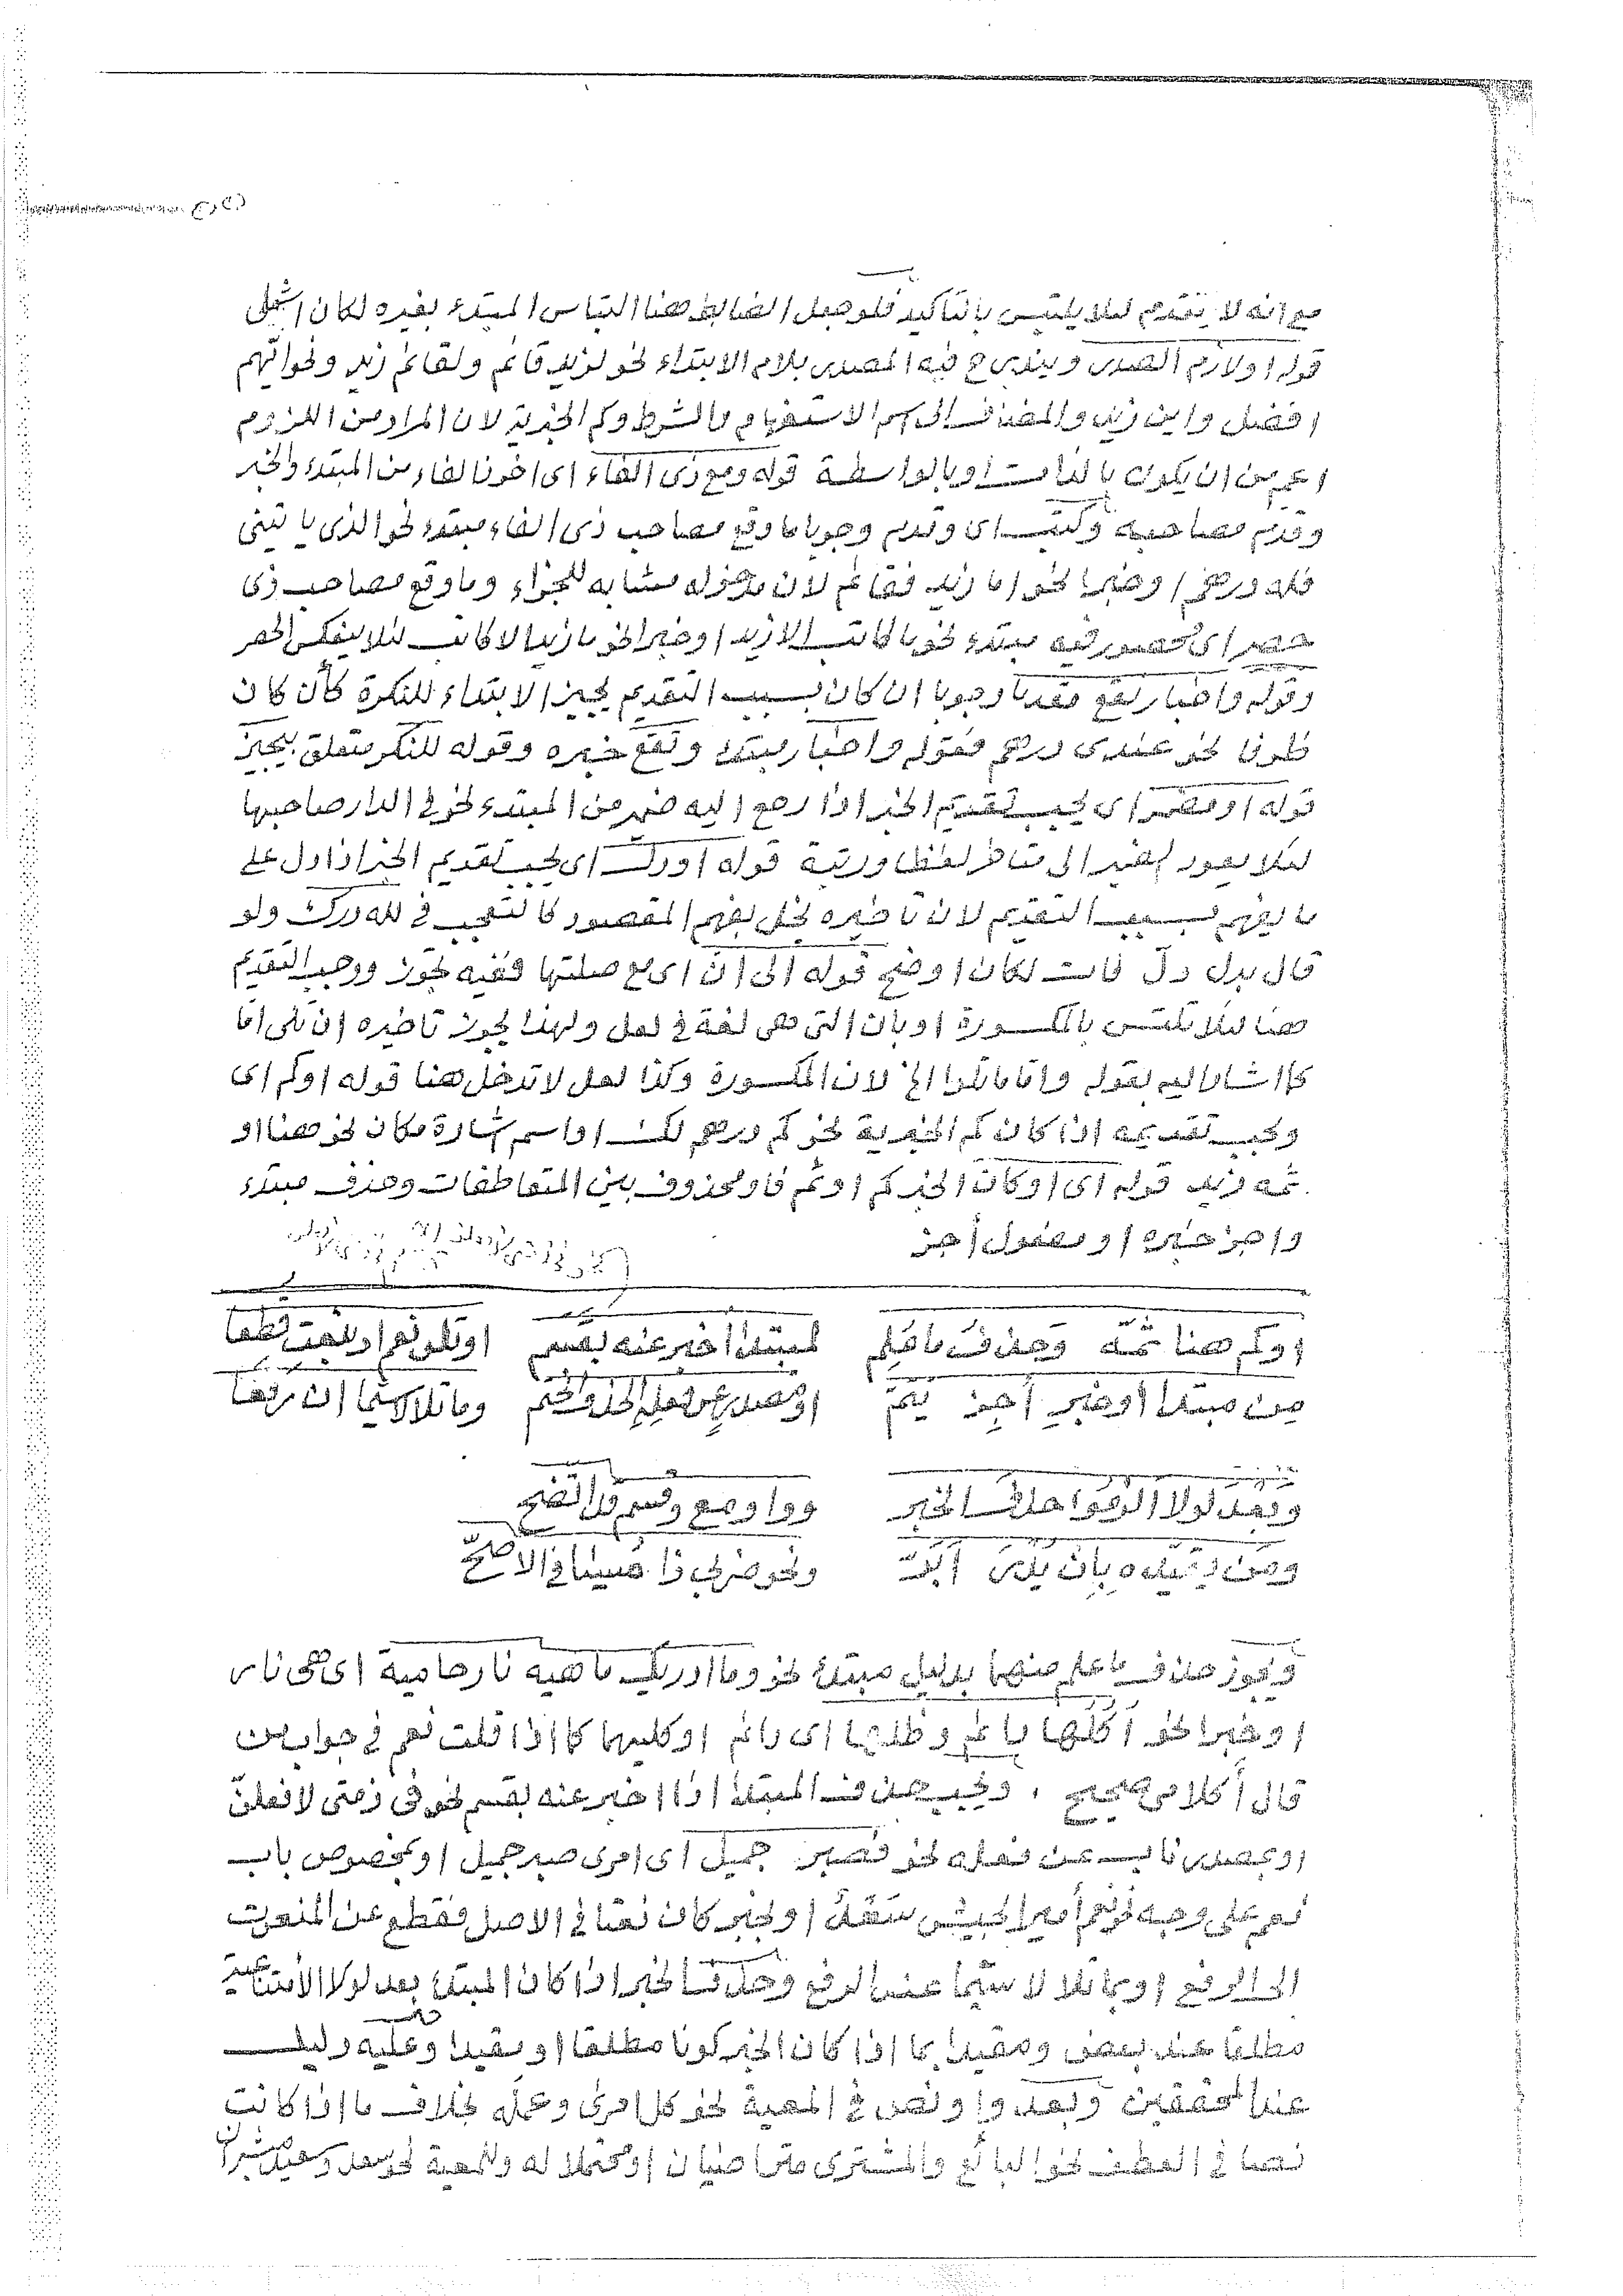 مع انه لا يتقدم لئلا يلتبس بالتأكيد فلو جعل الضابط هنا التباس المبتدء بغيره لكان اشمل
قوله او لازم الصدر ويندرج فيه المصدر بلام الابتداء نحو لزيد قائم ولقائم زيد ونحو ايهم
افضل واين زيد والمضاف الى اسم الاستفهام والشرط وكم الخبرية لان المراد من اللزوم
اعم من ان يكون بالذات او بالواسطة قوله ومع ذى الفاء اى اخونا لفاء من المبتدء والخبر
وقدم مصاحبه اى وقدم وجوبا ما وقع مصاحب ذى الفاء مبتدء نحو الذى يا تينى
فله درهم او خبرا نحو اما زيد فقائم لان مدخوله مشابه للجزاء وما وقع مصاحب ذى
حصر اى محصور فيه مبتدء نحو ما كاتب الا زيد او خبرا نحو ما زيد الا كاتب لئلا ينعكس الحصر
وقوله واخبار يقع مقدما وجوبا ان كان بسبب التقديم يجيز الابتداء للنكرة كأن كان
ظرفا نحو عندى درهم فقوله واخبار مبتدء وتقع خبره وقوله للنكر متعلق بيجيز
قوله او مضمر اى يجب تقديم الخبر اذا رجع اليه ضمير من المبتدء نحو فى الدار صاحبها
لئلا يعود الضمير الى متأخر لفظا ورتبة قوله او درك اى يجب تقديم الخبر اذا دل على
ما يفهم بسبب التقديم لان تاخيره يخل بفهم المقصود كالتعجب فى لله درك ولو
قال بدل دلّ فات لكان اوضح قوله الى انّ اى مع صلتها ففيه تجوز ووجب التقديم
هنا لئلا تلتبس بالمكسورة او بان التى هى لغة فى لعل ولهذا يجوز تاخيره ان تلى امّا
كما اشار اليه بقوله وامّا ما تلوا الخ لان المكسورة وكذا لعل لا تدخل هنا قوله او كم اى
ويجب تقديمه اذا كان كم الخبرية نحو كم درهم لك او اسم اشارة مكان نحو هنا او
ثمه زيد قوله اى او كان الخبر كم او ثم فاو محذوف بين المتعاطفات وحذف مبتدء
واجز خبره او مفعول أجز
او كم هنا ثمّه وحذف ما علم لمبتدا اخبر عنه بقسم او تلو نعم او نعت قطعا
من مبتدا أو خبر أجز يتم او مصدر عن فعله الحذف ختم وما تلا لا سيّما ان رفعا
وبعد لولا الزموا حذف الخبر وواو مع وقسم قد اتضح
ومن يقيده بأن يدر أبرّ ونحو ضربى ذا مسيئا فى الاصحّ
ويجوز حذف ما علم منهما بدليل مبتدء نحو وما ادريك ماهيه نار حامية اى هى نار
او خبرا نحو أكلها دائم وظلها اى دائم او كليهما كما اذا قلت نعم فى جواب من
قال أكلامى صحيح ، ويجب حذف المبتدء اذا اخبر عنه بقسم نحو فى ذمتى لافعلنّ
او بمصدر نايب عن فعله نحو فصبر جميل اى امرى صبر جميل او بمخصوص باب
نعم على وجه نحو نعم أمير الجيش سَعْدٌ او بخبر كان نعتا فى الاصل فقطع عن المنعوت
الى الرفع او بما تلا لا سيّما عند الرفع وحذف الخبر اذا كان المبتدء بعد لولا الامتناعية
مطلقا عند بعض ومقيدا بما اذا كان الخبر كونا مطلقا او مقيدا وعليه دليل
عند المحققين وبعد واو نص فى المعية نحو كل امرئ وعمله بخلاف ما اذا كانت
نصا فى العطف نحو البائع والمشترى متراضيان او محتملا له وللمعية نحو سعد وسعيد